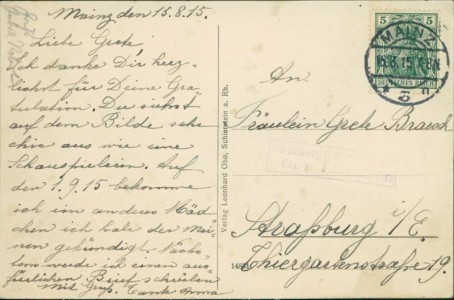 Mainz den 15.8.15.
Liebe Grete!
Ich danke Dir herz-
lichst für Deine Gra-
tulation. Du siehst
auf dem Bilde
aus wie eine
Schauspielerin. Auf
den 1.9.15 bekomme
ich ein anderes Mäd-
chen ich habe der mei-
nen gekündigt. Nächs-
tens werde ich einen aus-
führlichen Brief schreiben
mit Gruß. Tante Anna
Verlag Leonhard Ohe, Schierstein a. Rh.
5 5
DEUTSCHES REICH
MAINZ
16.8.15.
An
Fräulein Grete Brasch
Straßburg i/E.
Thiergartenstraße 19.